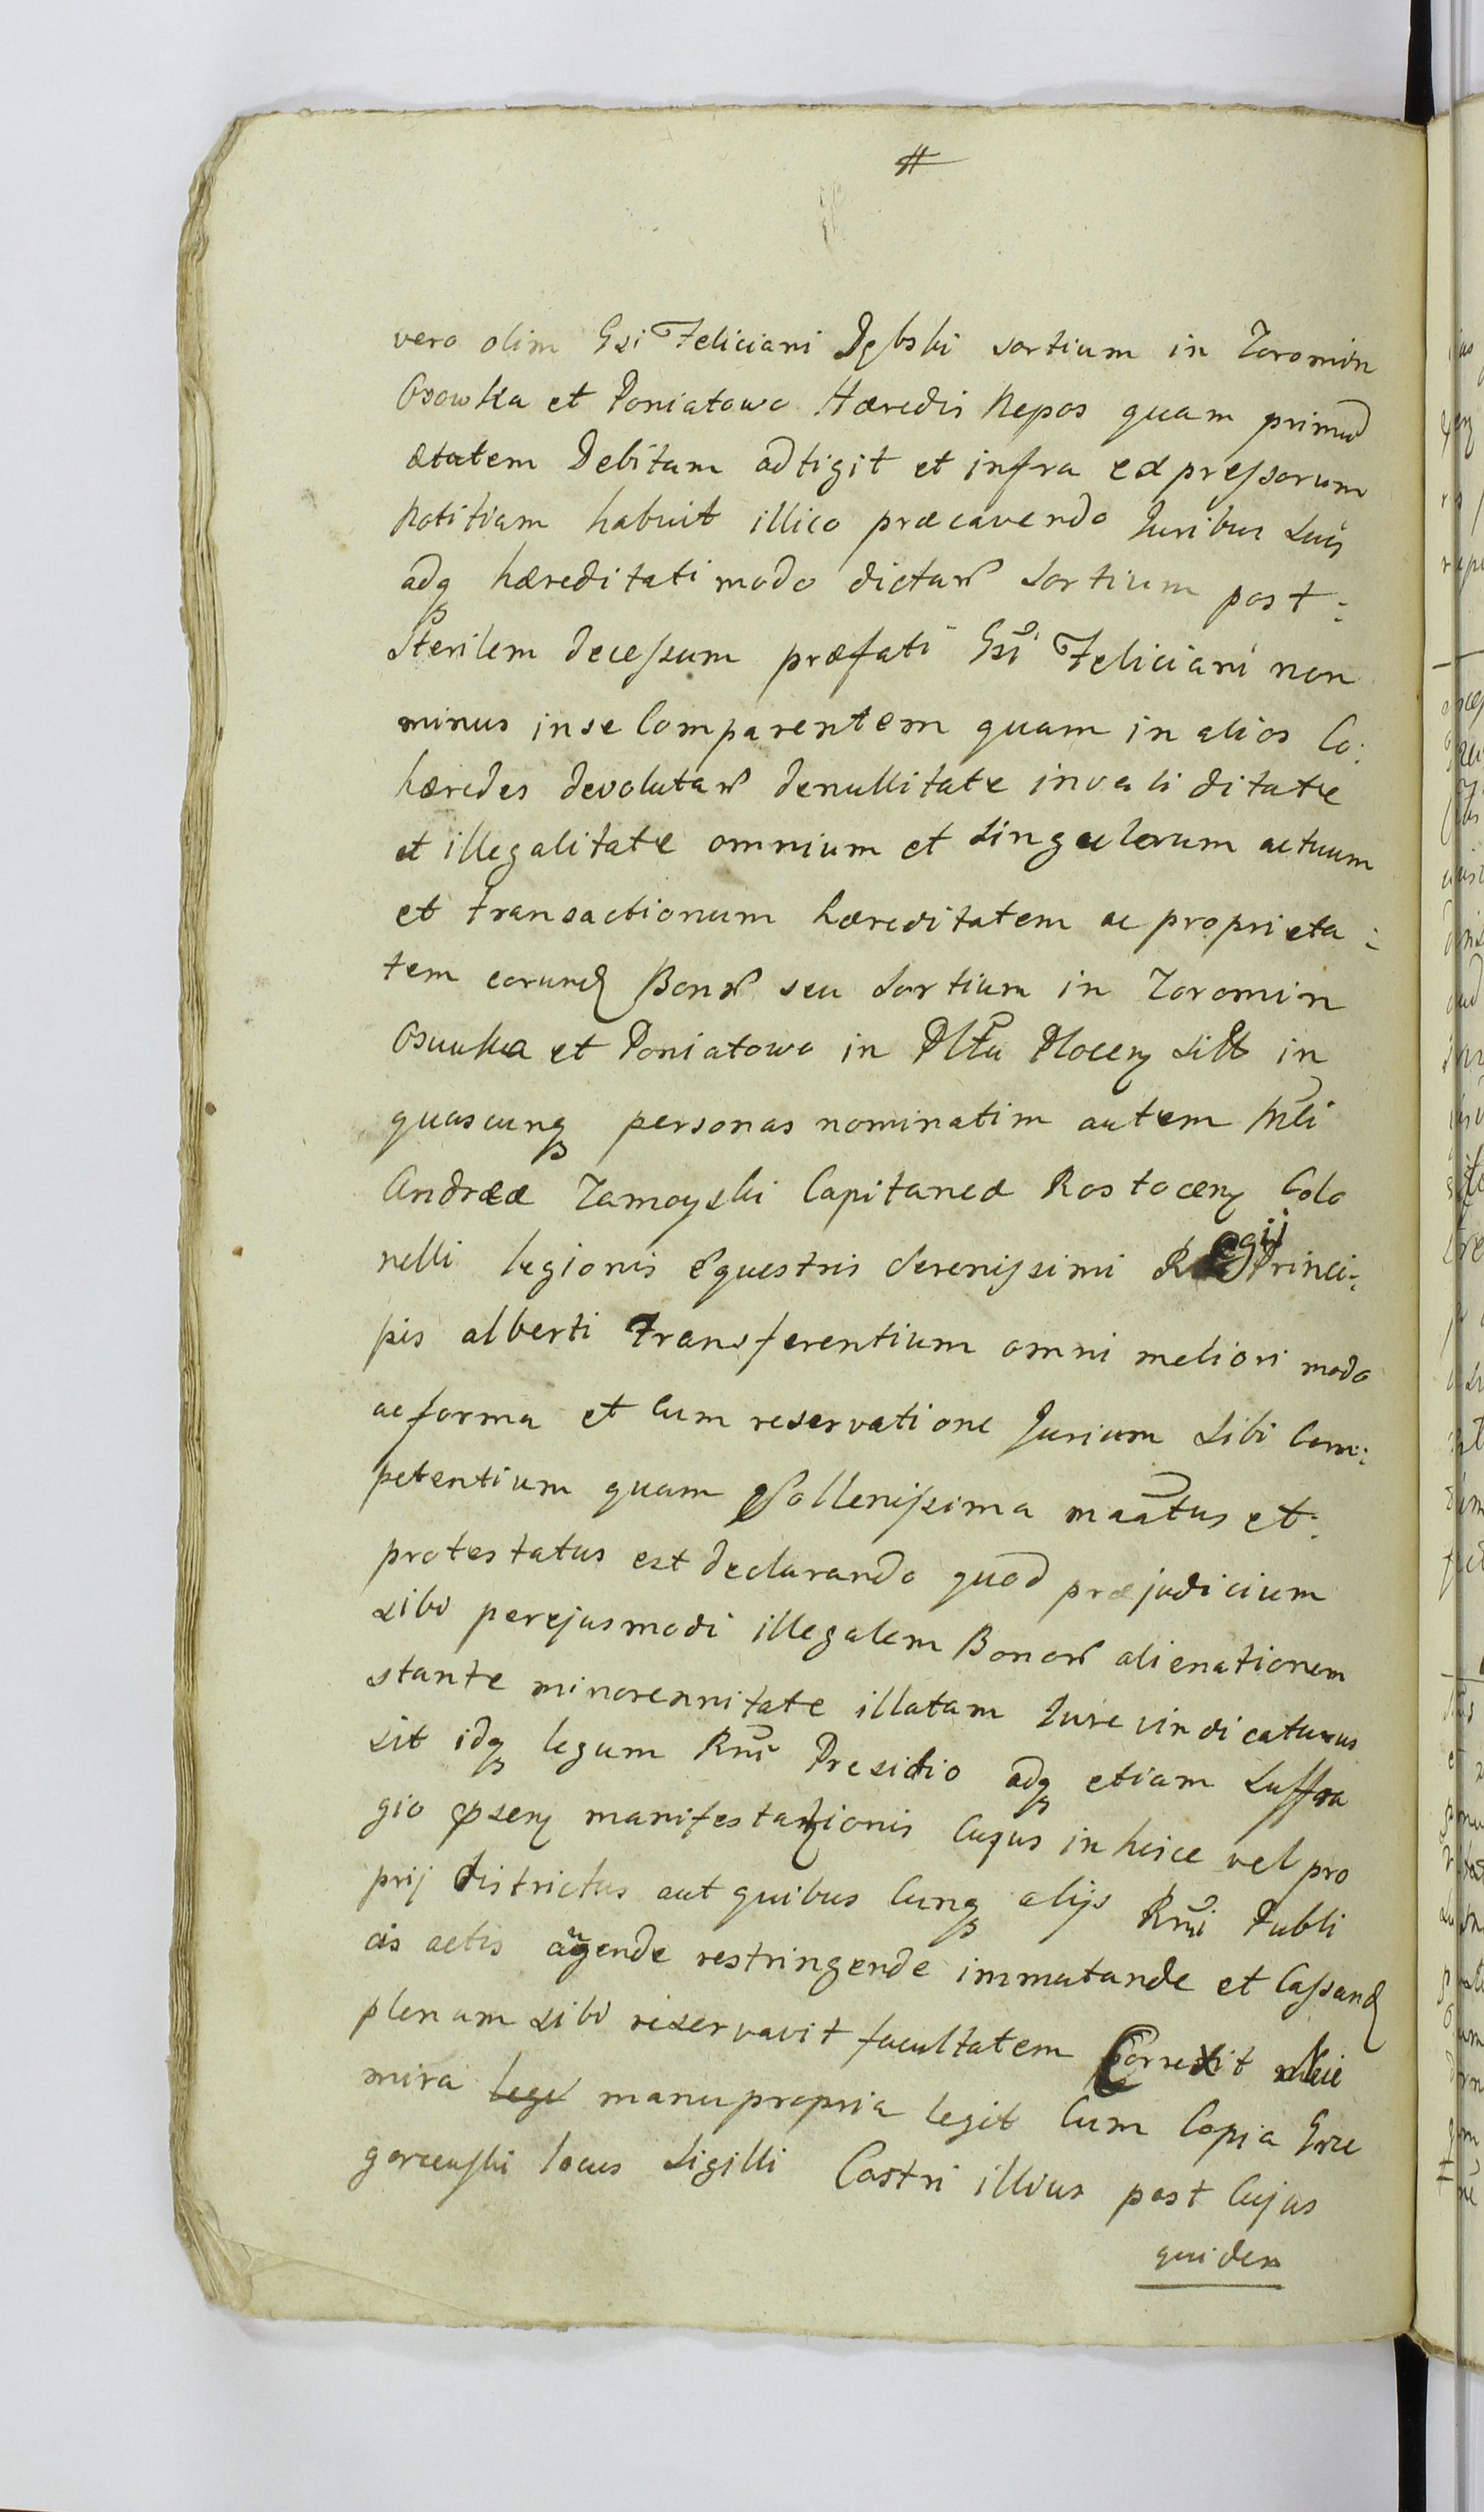 #
vero olim Gsi Feliciani Dębski sortium in Zoromin
Osowka et Poniatowo Hæredis Nepos quam primũ
ætatem Debitam adtigit et infra expressorum
Notitiam habuit illico præcavendo Juribus suis
adq hæreditati modo dictar sortium post:
Sterilem decessum præfati Gsi Feliciani non
minus in se Comparentem quam in alios Co:
hæredes devolutar de nullitate invaliditate
et illegalitate omnium et singulorum actuum
et transactionum hæreditatem ac proprieta:
tem eorund Bonor seu sortium in Zoromin
Osuwka et Poniatowo in Pltu Plocen sitt in
quascunq personas nominatim autem Mli
Andreæ Zamoyski Capitanei Rostocen Colo
nelli legionis Equestris Serenissimi Regii Princi:
pis alberti transferentium omni meliori modo
ac forma et Cum reservatione Jurium sibi Com:
petentium quam sollenissima maatus et:
protestatus est declarando quod præjudicium
sibi per ejusmodi illegalem Bonor alienationem
stante minorennitate illatam Jure vindicaturus
sit idq legum Rni Presidio adq etiam suffra
gio psen manifestationis Cujus in hisce vel pro
prij districtus aut quibus Cunq alijs Rni Publi
cis actis augende restringende immutande et Cassand
plenam sibi reservavit facultatem Correxit
mira lege manu propria legit Cum Copia Grze
gorzewski locus sigilli Castri illius post Cujus
quidem